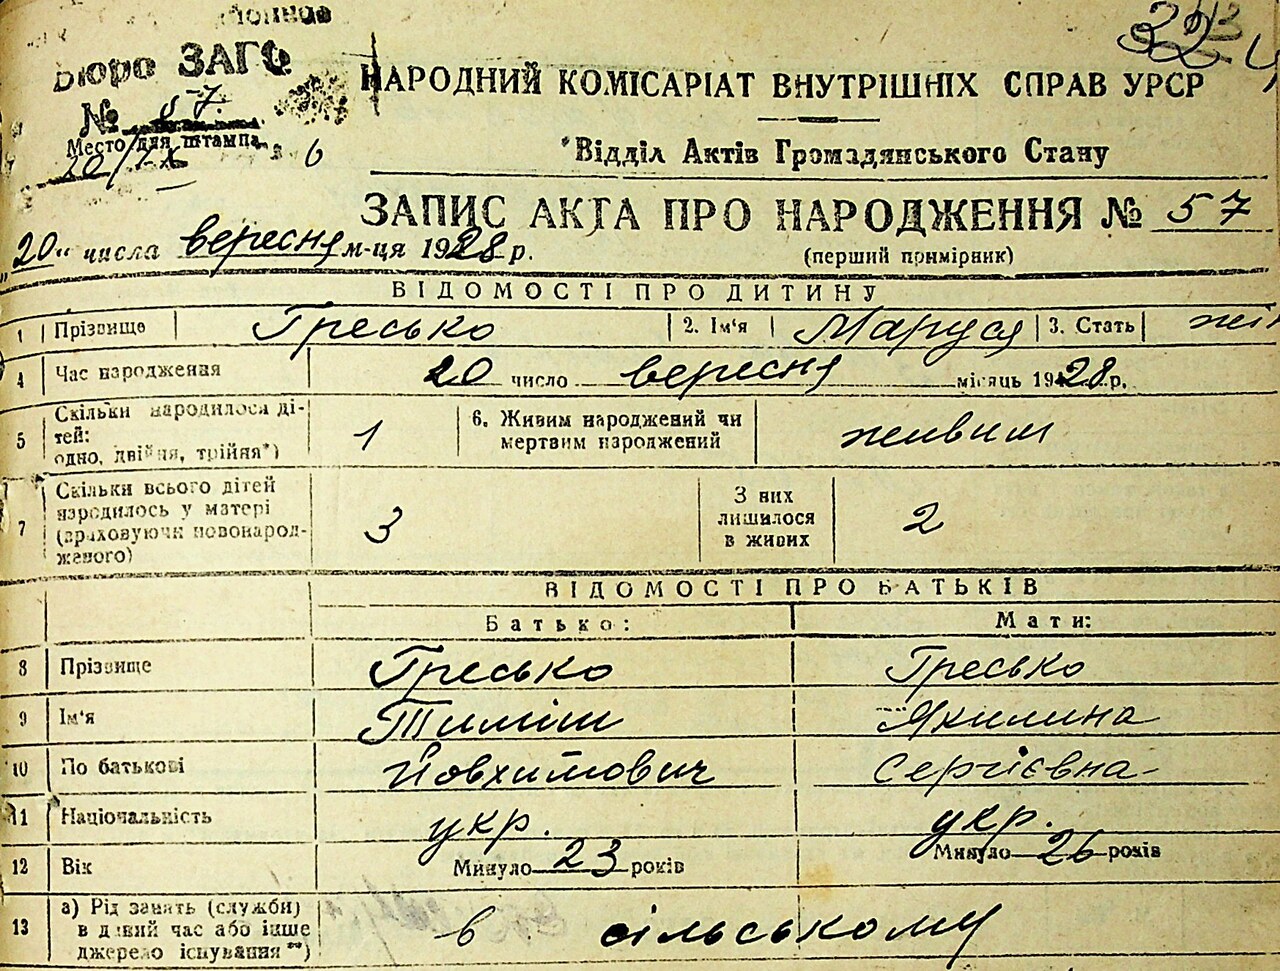 Бюро ЗАГС
№ 57.
Место для штампа
20/IX 6
НАРОДНИЙ КОМІСАРІАТ ВНУТРІШНІХ СПРАВ УРСР
Відділ Актів Громадянського Стану
ЗАПИС АКТА ПРО НАРОДЖЕННЯ № 57
„20“ числа вересня м-ця 1928 р.
(перший примірник)
ВІДОМОСТІ ПРО ДИТИНУ
1 Прізвище Гресько 2. Ім‘я Маруся 3. Стать жін
4 Час народження 20 число вересня місяць 1928 р.
5 Скільки народилося ді-
тей:
одно, двійня, трійня*)
1
6. Живим народжений чи
мертвим народжений
живим
7 Скільки всього дітей
народилось у матері
(враховуючи новонарод-
женого)
3
З них
лишилося
в живих
2
ВІДОМОСТІ ПРО БАТЬКІВ
Батько: Мати:
8 Прізвище Гресько Гресько
9 Ім‘я Тиміш Якилина
10 По батькові Йовхимович Сергієвна
11 Національність укр. укр.
12 Вік Минуло 23 років Минуло 26 років
13 а) Рід занять (служби)
в даний час або інше
джерело існування**)
в сільському